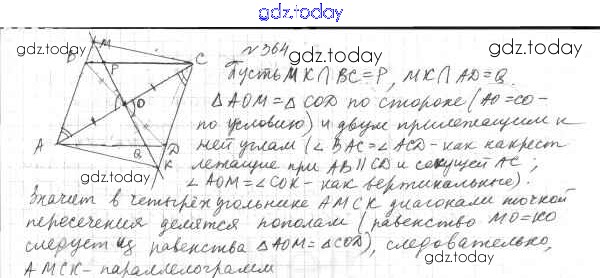 gdz.today
№364
gdz.today gdz.today
Пусть MK∩BC=P, MK∩AD=Q.
△AOM=△COD по стороне (AO=CO-
по условию) и двум прилежащим к
ней углам (∠BAC=∠ACD - как накрест
лежащие при AB∥CD и секущей AC;
∠AOM=∠COK - как вертикальные).
Значит в четырёхугольнике AMCK диагонали точкой
пересечения делятся пополам (равенство MO=KO
следует из равенства △AOM=△COD), следовательно,
AMCK - параллелограмм
M
B
P
C
O
A
Q
D
K
gdz.today
gdz.today
gdz.today
gdz.today